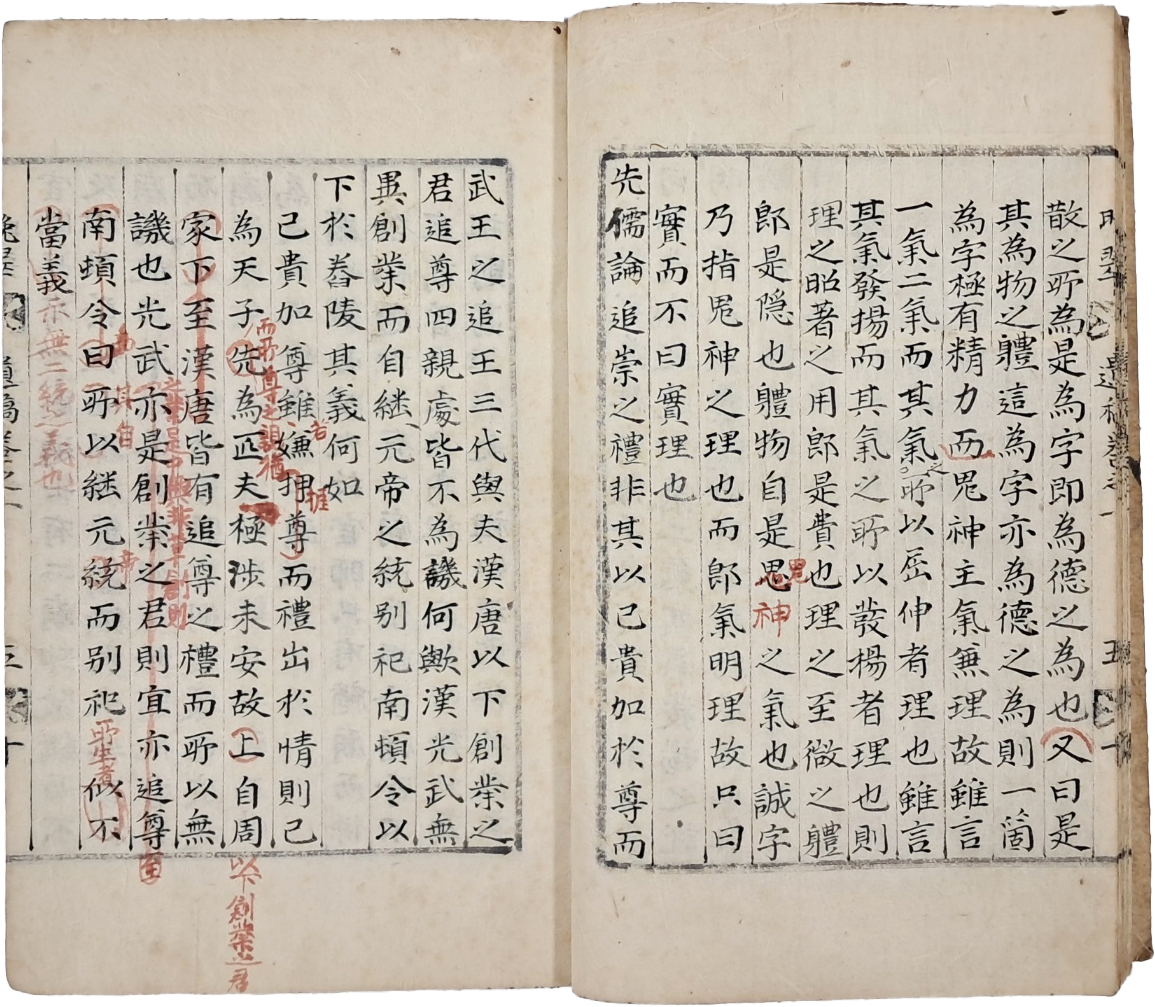 散之所為是為字即為德之為也又曰是
其為物之體這為字亦為德之為則一箇
為字極有精力而鬼神主氣兼理故雖言
一氣二氣而其氣之所以屈伸者理也雖言
其氣發揚而其氣之所以發揚者理也則
理之昭著之用郎是費也理之至微之體
郎是隱也體物自是鬼神之氣也誠字
乃指鬼神之理也而郎氣明理故只曰
實而不曰實理也
先儒論追崇之禮非其以己貴加於尊而
武王之追王三代與夫漢唐以下創業之
君追尊四親處皆不為譏何歟漢光武無
異創業而自繼元帝之統别祀南頓令以
下於舂陵其義何如
己貴加尊雖嫌押尊而禮出於情則己
為天子先為匹夫極涉未安故上自周
家下至漢唐皆有追尊之禮而所以無
譏也光武亦是創業之君則宜亦追尊
南頓令曰所以継元統而别祀似不
當義
而所尊之親猶
者
捱
以下創業之君
之業是中興非草創則
至
其自
帝
所生者
亦無二統之義也
鬼
神
遺稿卷之一
五十